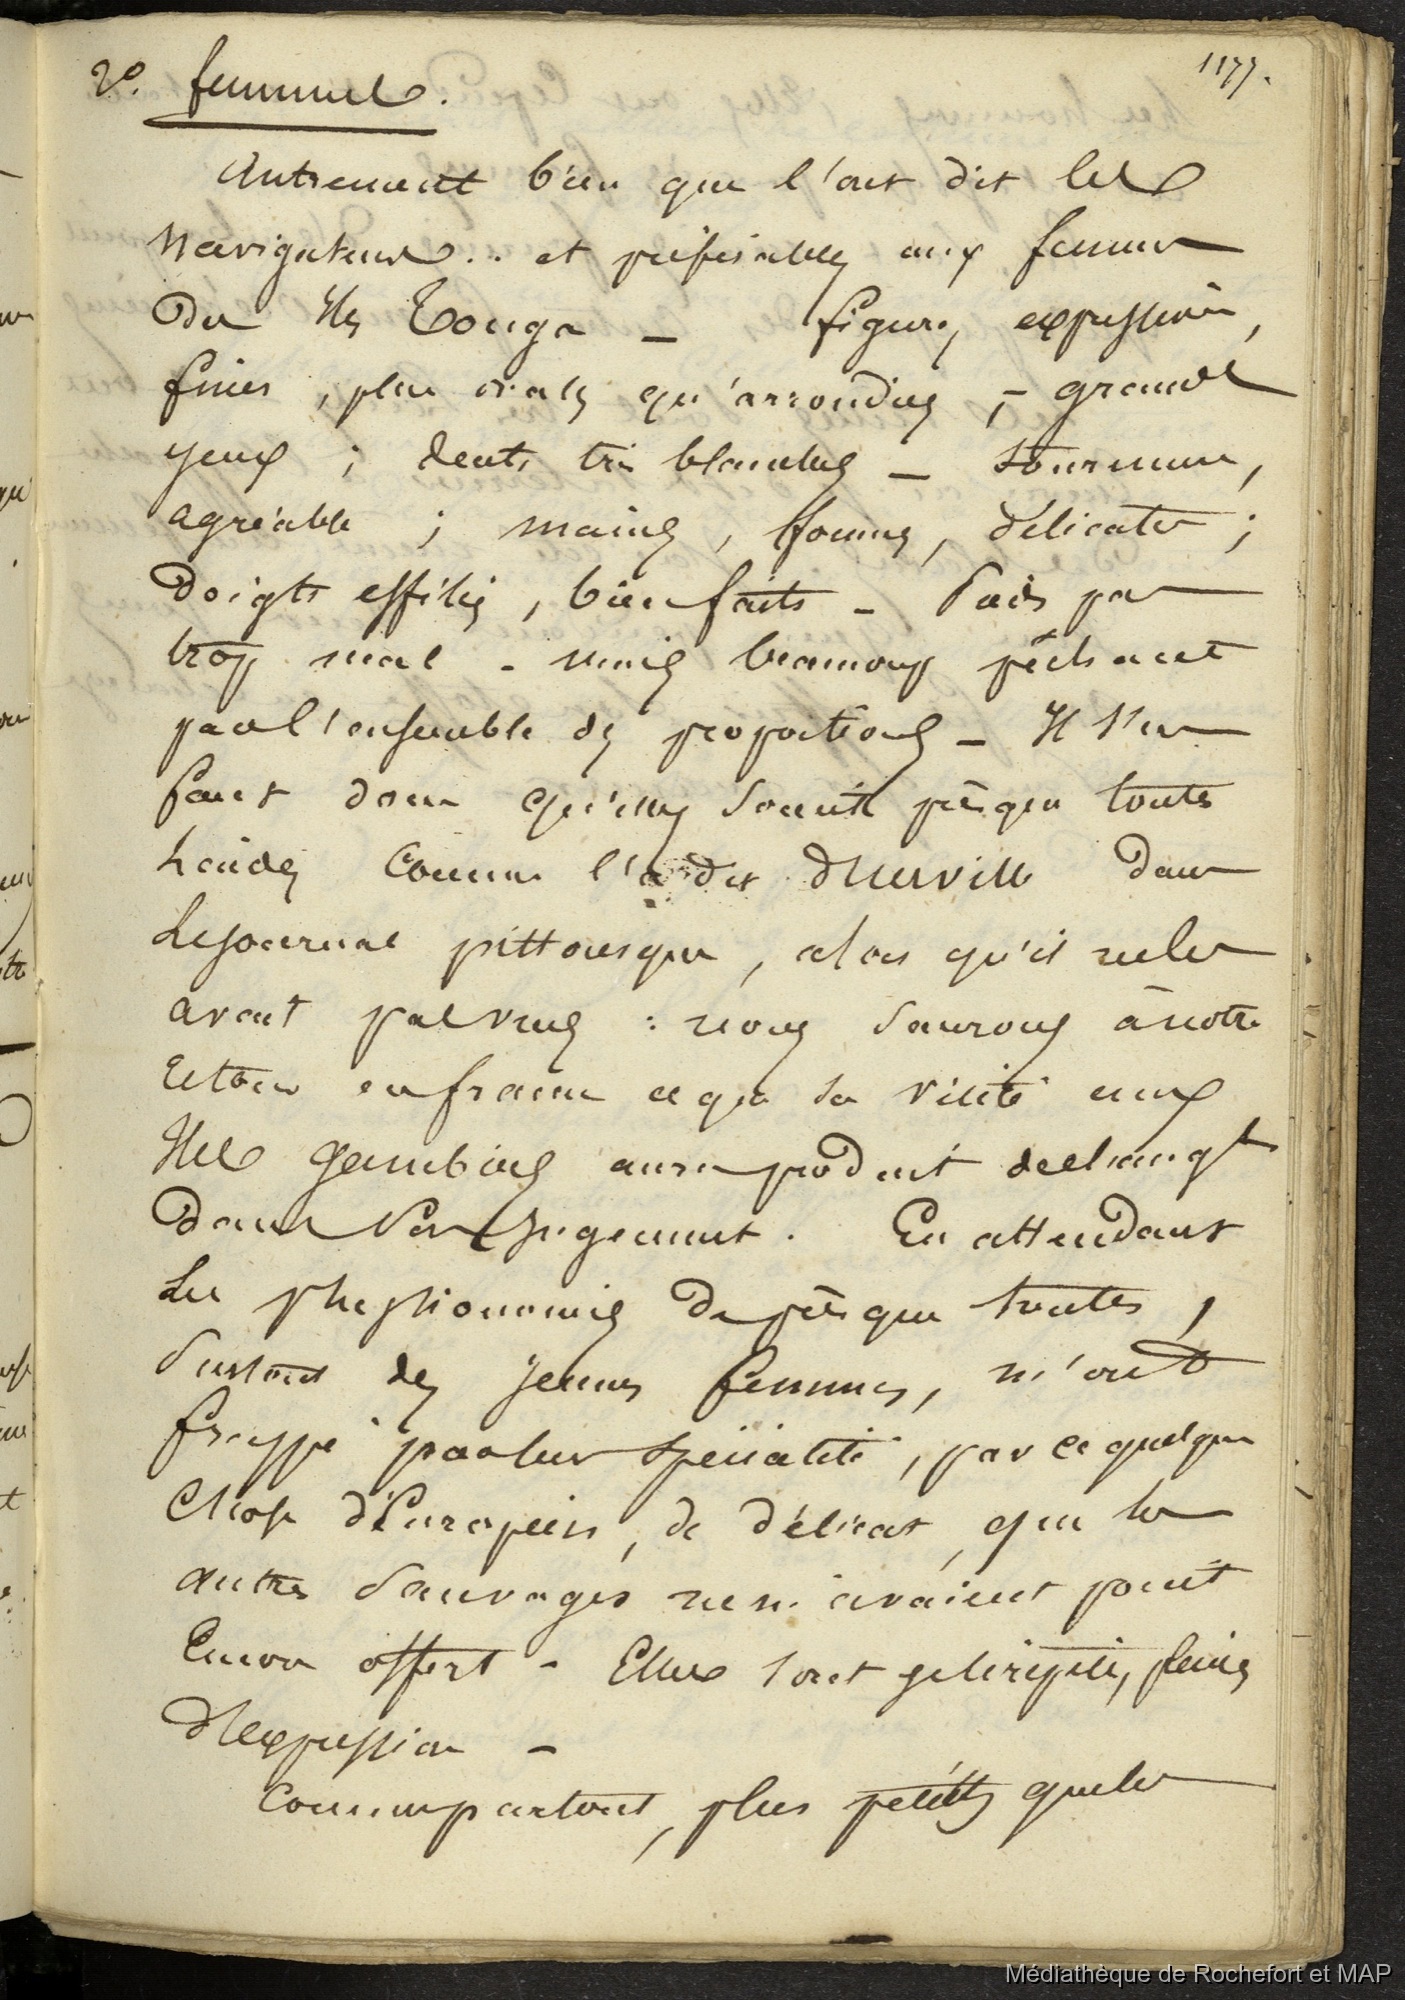 1177.
2°. femmes.
Autrement bien que l'ont dit les
Navigateurs.. et préférables aux femmes
Des Iles Tonga — figures expressives,
fines, plus ovales qu'arrondies ; — grands
yeux ; dents très blanches — tournure,
agréable ; mains, bonnes, délicates ;
Doigts effilés, bien faits — Pieds pas
trop mal — mais beaucoup péchant
par l'ensemble des proportions — Il s'en
faut donc qu'elles soient presque toutes
laides comme l'a dit d'Urville dans
Le journal pittoresque, alors qu'il ne les
avait pas vues : nous saurons à notre
retour en france ce que sa visite aux
Iles Gambier aura produit de changt
Dans son jugement. En attendant
Les physionomies de presque toutes,
surtout des jeunes femmes, m'ont
frappé par leur spécialité, par ce quelque
Chose d'Européen, de délicat, que les
autres sauvages ne m'avaient point
Encore offert — Elles sont pleines
d'expression —
Comme partout, plus petites que les
Médiathèque de Rochefort et MAP